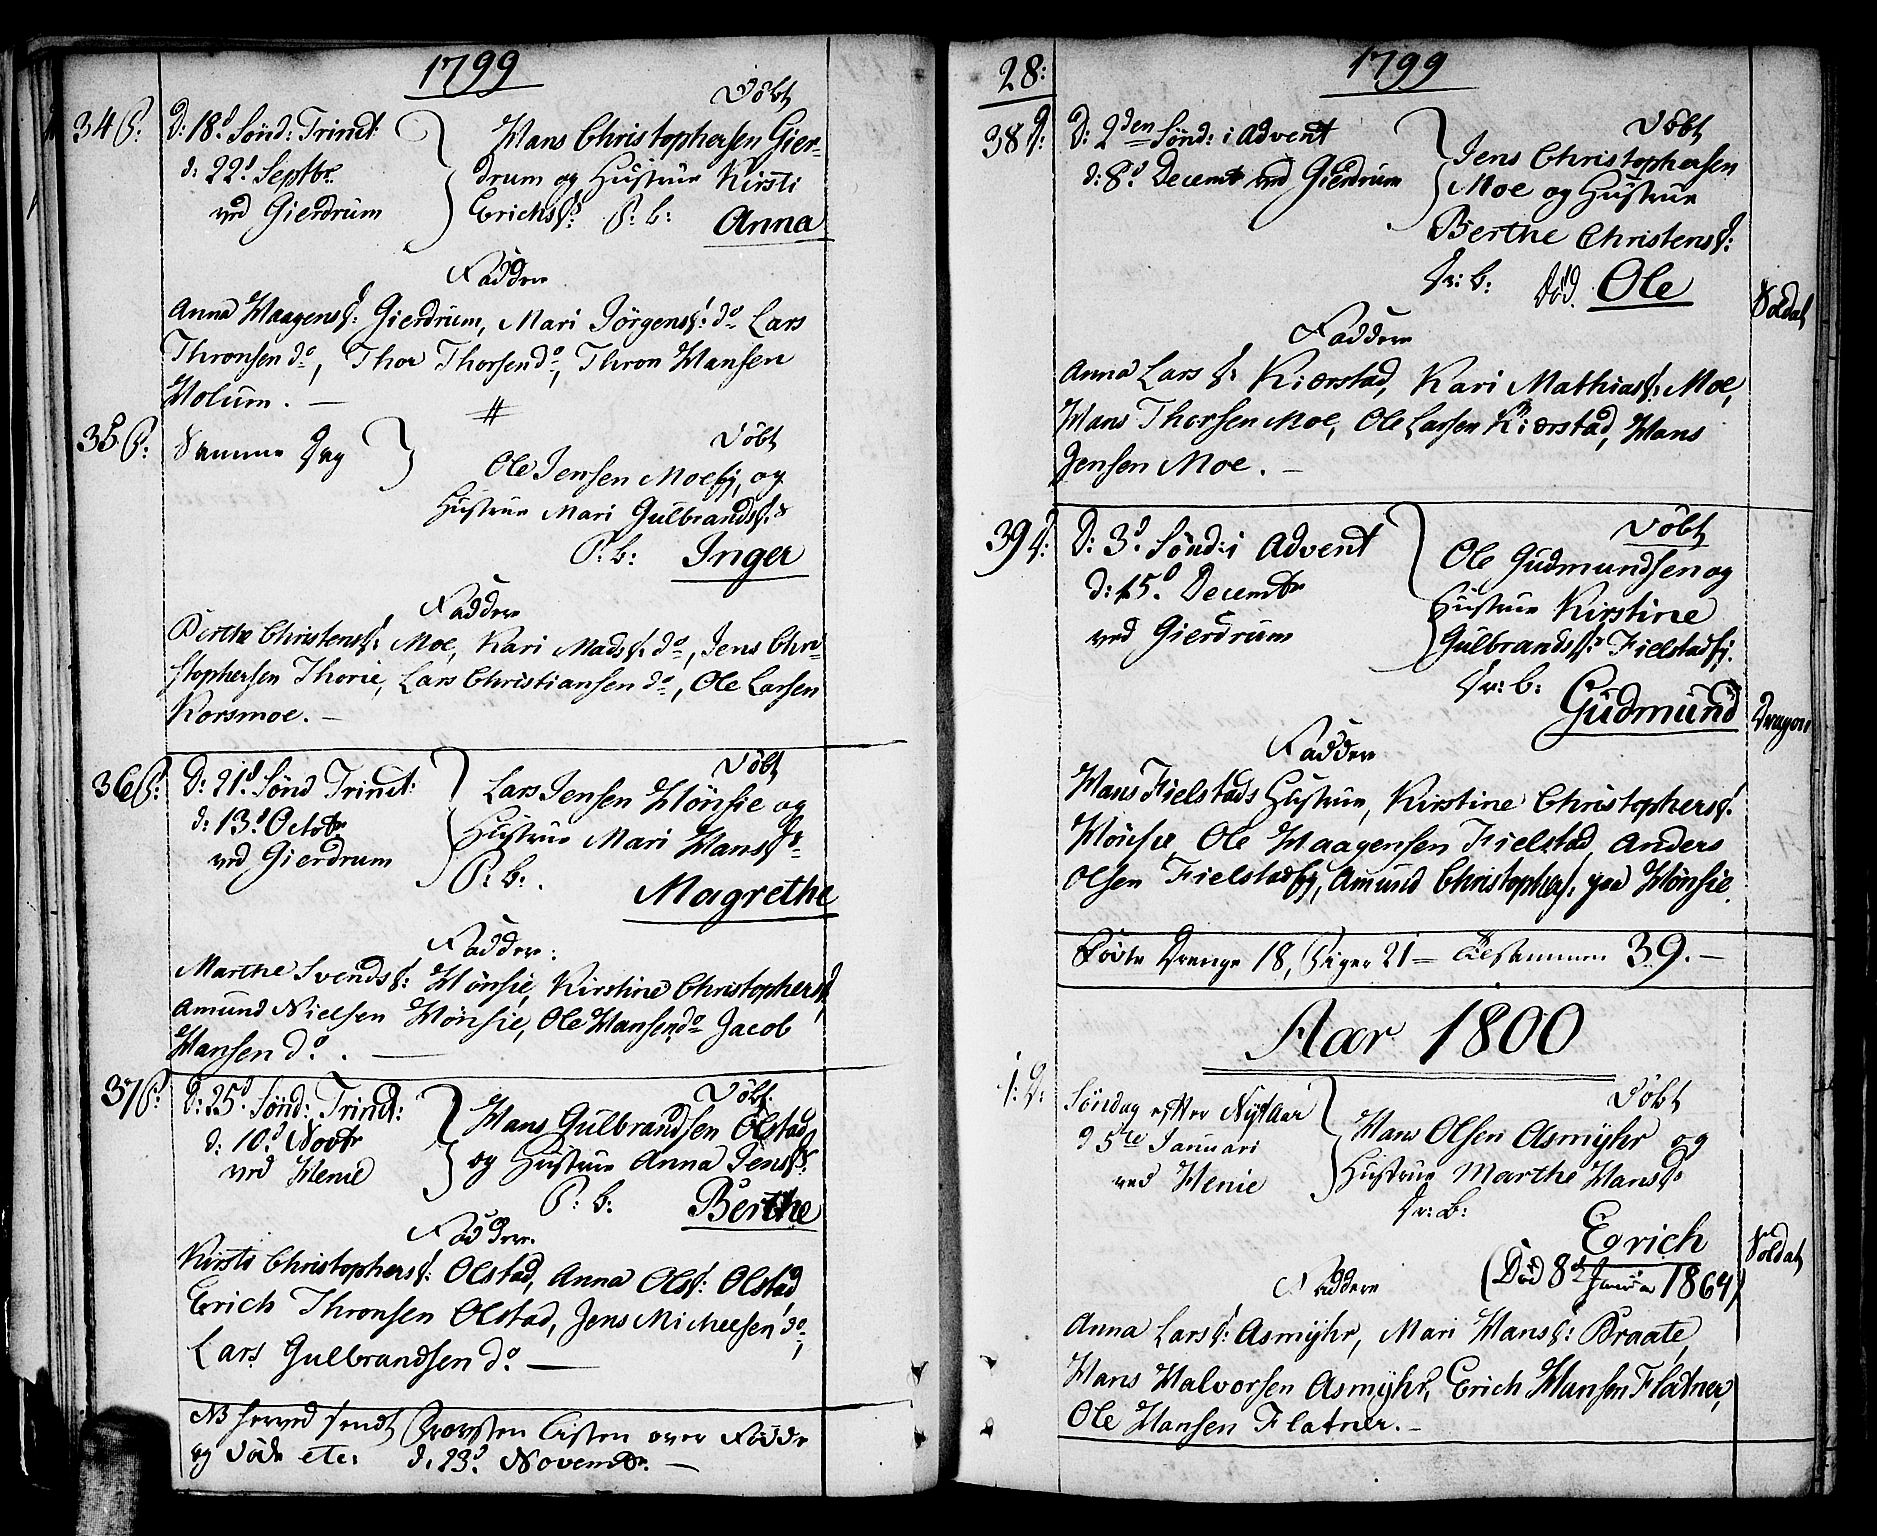 1799
34 P:
D: 18d Sönd: Trinit
d: 22d Septbr
ved Gierdrum
Döbt
Hans Christophersen Gier-
drum og Hustrue Kirsti
Erichsd: P: b: Anna
Faddere
Anna Haagensd: Gierdrum, Mari Jörgensd: do Lars
Thronsen do, Thor Thorsen do, Thron Hansen
Holum. —
35 P:
Samme Dag
Döbt
Ole Jensen Moeej, og
Hustrue Mari Gulbrandsd:
P: b: Inger
Faddere
Berthe Christensd: Moe, Kari Madsd: do, Jens Chri-
stophersen Thorie, Lars Christiansen do, Ole Larsen
Korsmoe. —
36 P:
D: 21d Sönd Trinit:
d: 13d Octobr
ved Gierdrum
Döbt
Lars Jensen Hönsie og
Hustrue Mari Hansd:
P: b:
Magrethe
Faddere:
Marthe Svendsd: Hönsie, Kirstine Christophersd
Amund Nielsen Hönsie, Ole Hansen do Jacob
Hansen do. —
37 P:
D: 25d Sönd: Trinit:
d: 10d Novbr
ved Henie
Döbt
Hans Gulbrandsen Olstad
og Hustrue Anna Jensd:
P: b: Berthe
Faddere
Kirsti Christophersd: Olstad, Anna Olsd: Olstad
Erich Thronsen Olstad, Jens Michelsen do,
Lars Gulbrandsen do —
NB herved sendt Provsten Listen over Födde
og Döde etc: d: 23d Novembr. —
28:
1799
38 D:
D: 2den Sönd: i Advent
d: 8d Decembr ved Gierdrum
Döbt
Jens Christophersen
Moe og Hustrue
Berthe Christensd:
Dr: b: Död. Ole
Soldat
Faddere
Anna Larsd: Kiærstad, Kari Mathiasd: Moe,
Hans Thorsen Moe, Ole Larsen Kiærstad, Hans
Jensen Moe. —
39 D:
D: 3d Sönd: i Advent
d: 15d Decembr
ved Gierdrum
Döbt
Ole Gudmundsen og
Hustrue Kirstine
Gulbrandsd: Fielstadej.
Dr: b: Gudmund
Dragon
Faddere
Hans Fielstads Hustrue, Kirstine Christophersd:
Hönsie Ole Haagensen Fielstad Anders
Olsen Fielstadej, Amund Christophers: paa Hönsie.
Dövte Drenge 18, Piger 21 = Tilsammen 39. —
Aar 1800
1: D:
Söndag efter Nyt Aar
d 5te Januari
ved Henie
Döbt
Hans Olsen Asmyhr og
Hustrue Marthe Hansd:
Dr: b:
Erich
(Död 8de Januar 1864)
Soldat
Faddere
Anna Larsd: Asmyhr, Mari Hansd: Braate,
Hans Halvorsen Asmyhr, Erich Hansen Flatner,
Ole Hansen Flatner. —